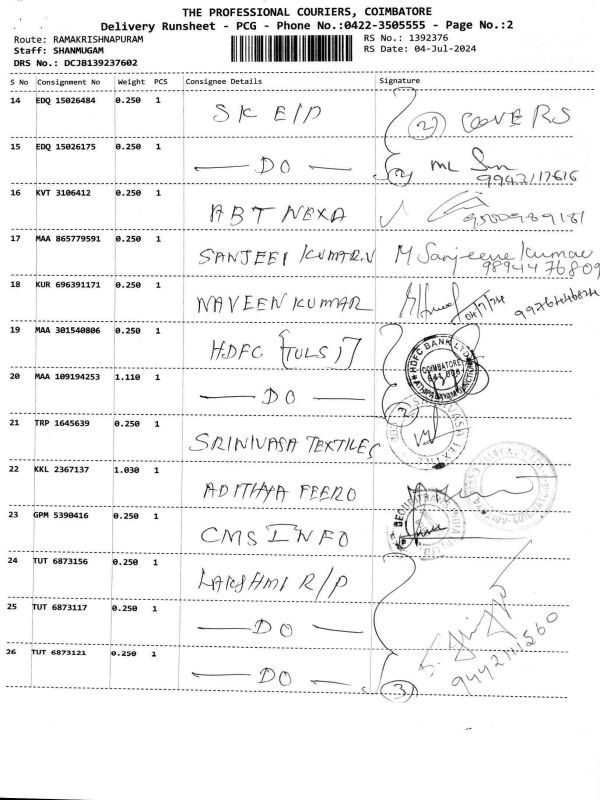 THE PROFESSIONAL COURIERS, COIMBATORE
Delivery Runsheet - PCG - Phone No.:0422-3505555 - Page No.:2
Route: RAMAKRISHNAPURAM RS No.: 1392376
Staff: SHANMUGAM RS Date: 04-Jul-2024
DRS No.: DCJB139237602
S No Consignment No Weight PCS Consignee Details Signature
14 EDQ 15026484 0.250 1 SK E/P (2) COVERS
15 EDQ 15026175 0.250 1 — DO — (2) ML
9943117616
16 KVT 3106412 0.250 1 ABT NEXA 9500989181
17 MAA 865779591 0.250 1 SANJEEI KUMAR.V M Sanjeeve Kumar
9894476809
18 KUR 696391171 0.250 1 NAVEEN KUMAR 04/7/24
19 MAA 301540806 0.250 1 HDFC [TULSI] HDFC BANK LTD
COIMBATORE
20 MAA 109194253 1.110 1 — DO —
21 TRP 1645639 0.250 1 SRINIVASA TEXTILES
22 KKL 2367137 1.030 1 ADITHYA FEERO
23 GPM 5390416 0.250 1 CMS INFO
24 TUT 6873156 0.250 1 LAKSHMI R/P
25 TUT 6873117 0.250 1 — DO —
26 TUT 6873121 0.250 1 — DO — (3)